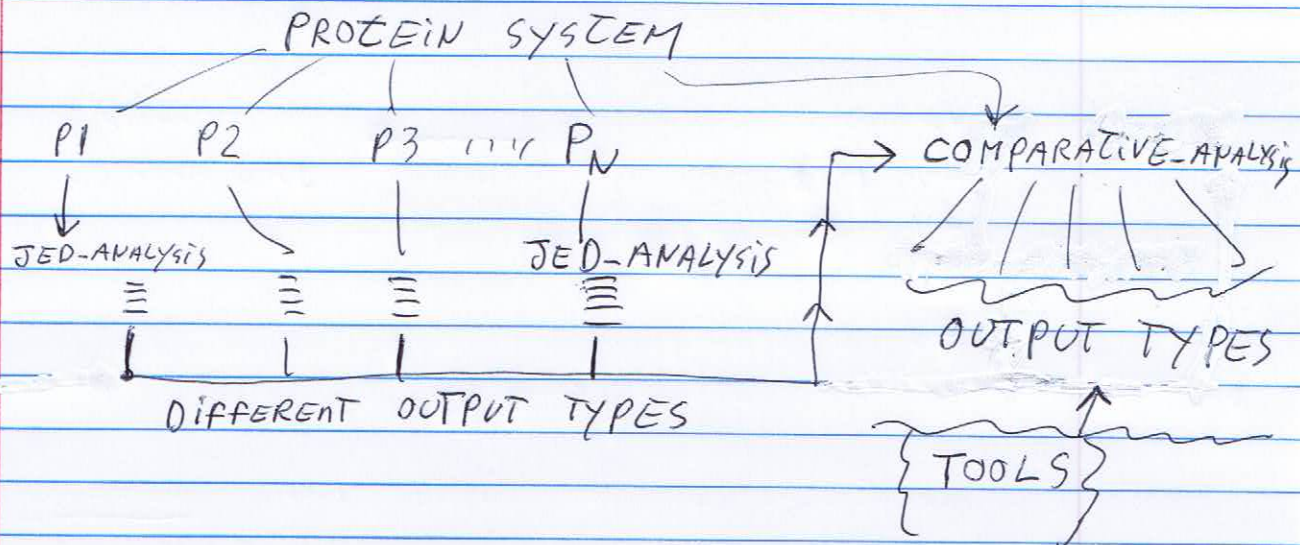 PROTEIN SYSTEM
P1 P2 P3 .... PN COMPARATIVE_ANALYSIS
JED_ANALYSIS JED_ANALYSIS
OUTPUT TYPES
DIFFERENT OUTPUT TYPES
TOOLS